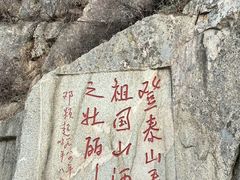 登泰山看
祖国山河
之壮丽
邓颖超